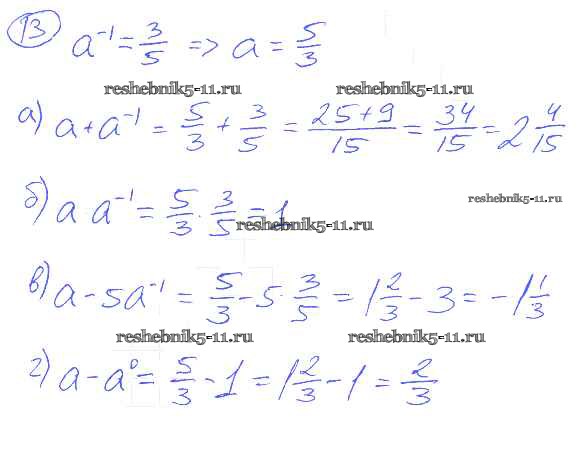 13 a⁻¹ = 3/5 => a = 5/3
reshebnik5-11.ru reshebnik5-11.ru
а) a + a⁻¹ = 5/3 + 3/5 = (25+9)/15 = 34/15 = 2 4/15
б) a a⁻¹ = 5/3 · 3/5 = 1
reshebnik5-11.ru
reshebnik5-11.ru
в) a - 5a⁻¹ = 5/3 - 5 · 3/5 = 1 2/3 - 3 = -1 1/3
reshebnik5-11.ru reshebnik5-11.ru
г) a - a⁰ = 5/3 - 1 = 1 2/3 - 1 = 2/3